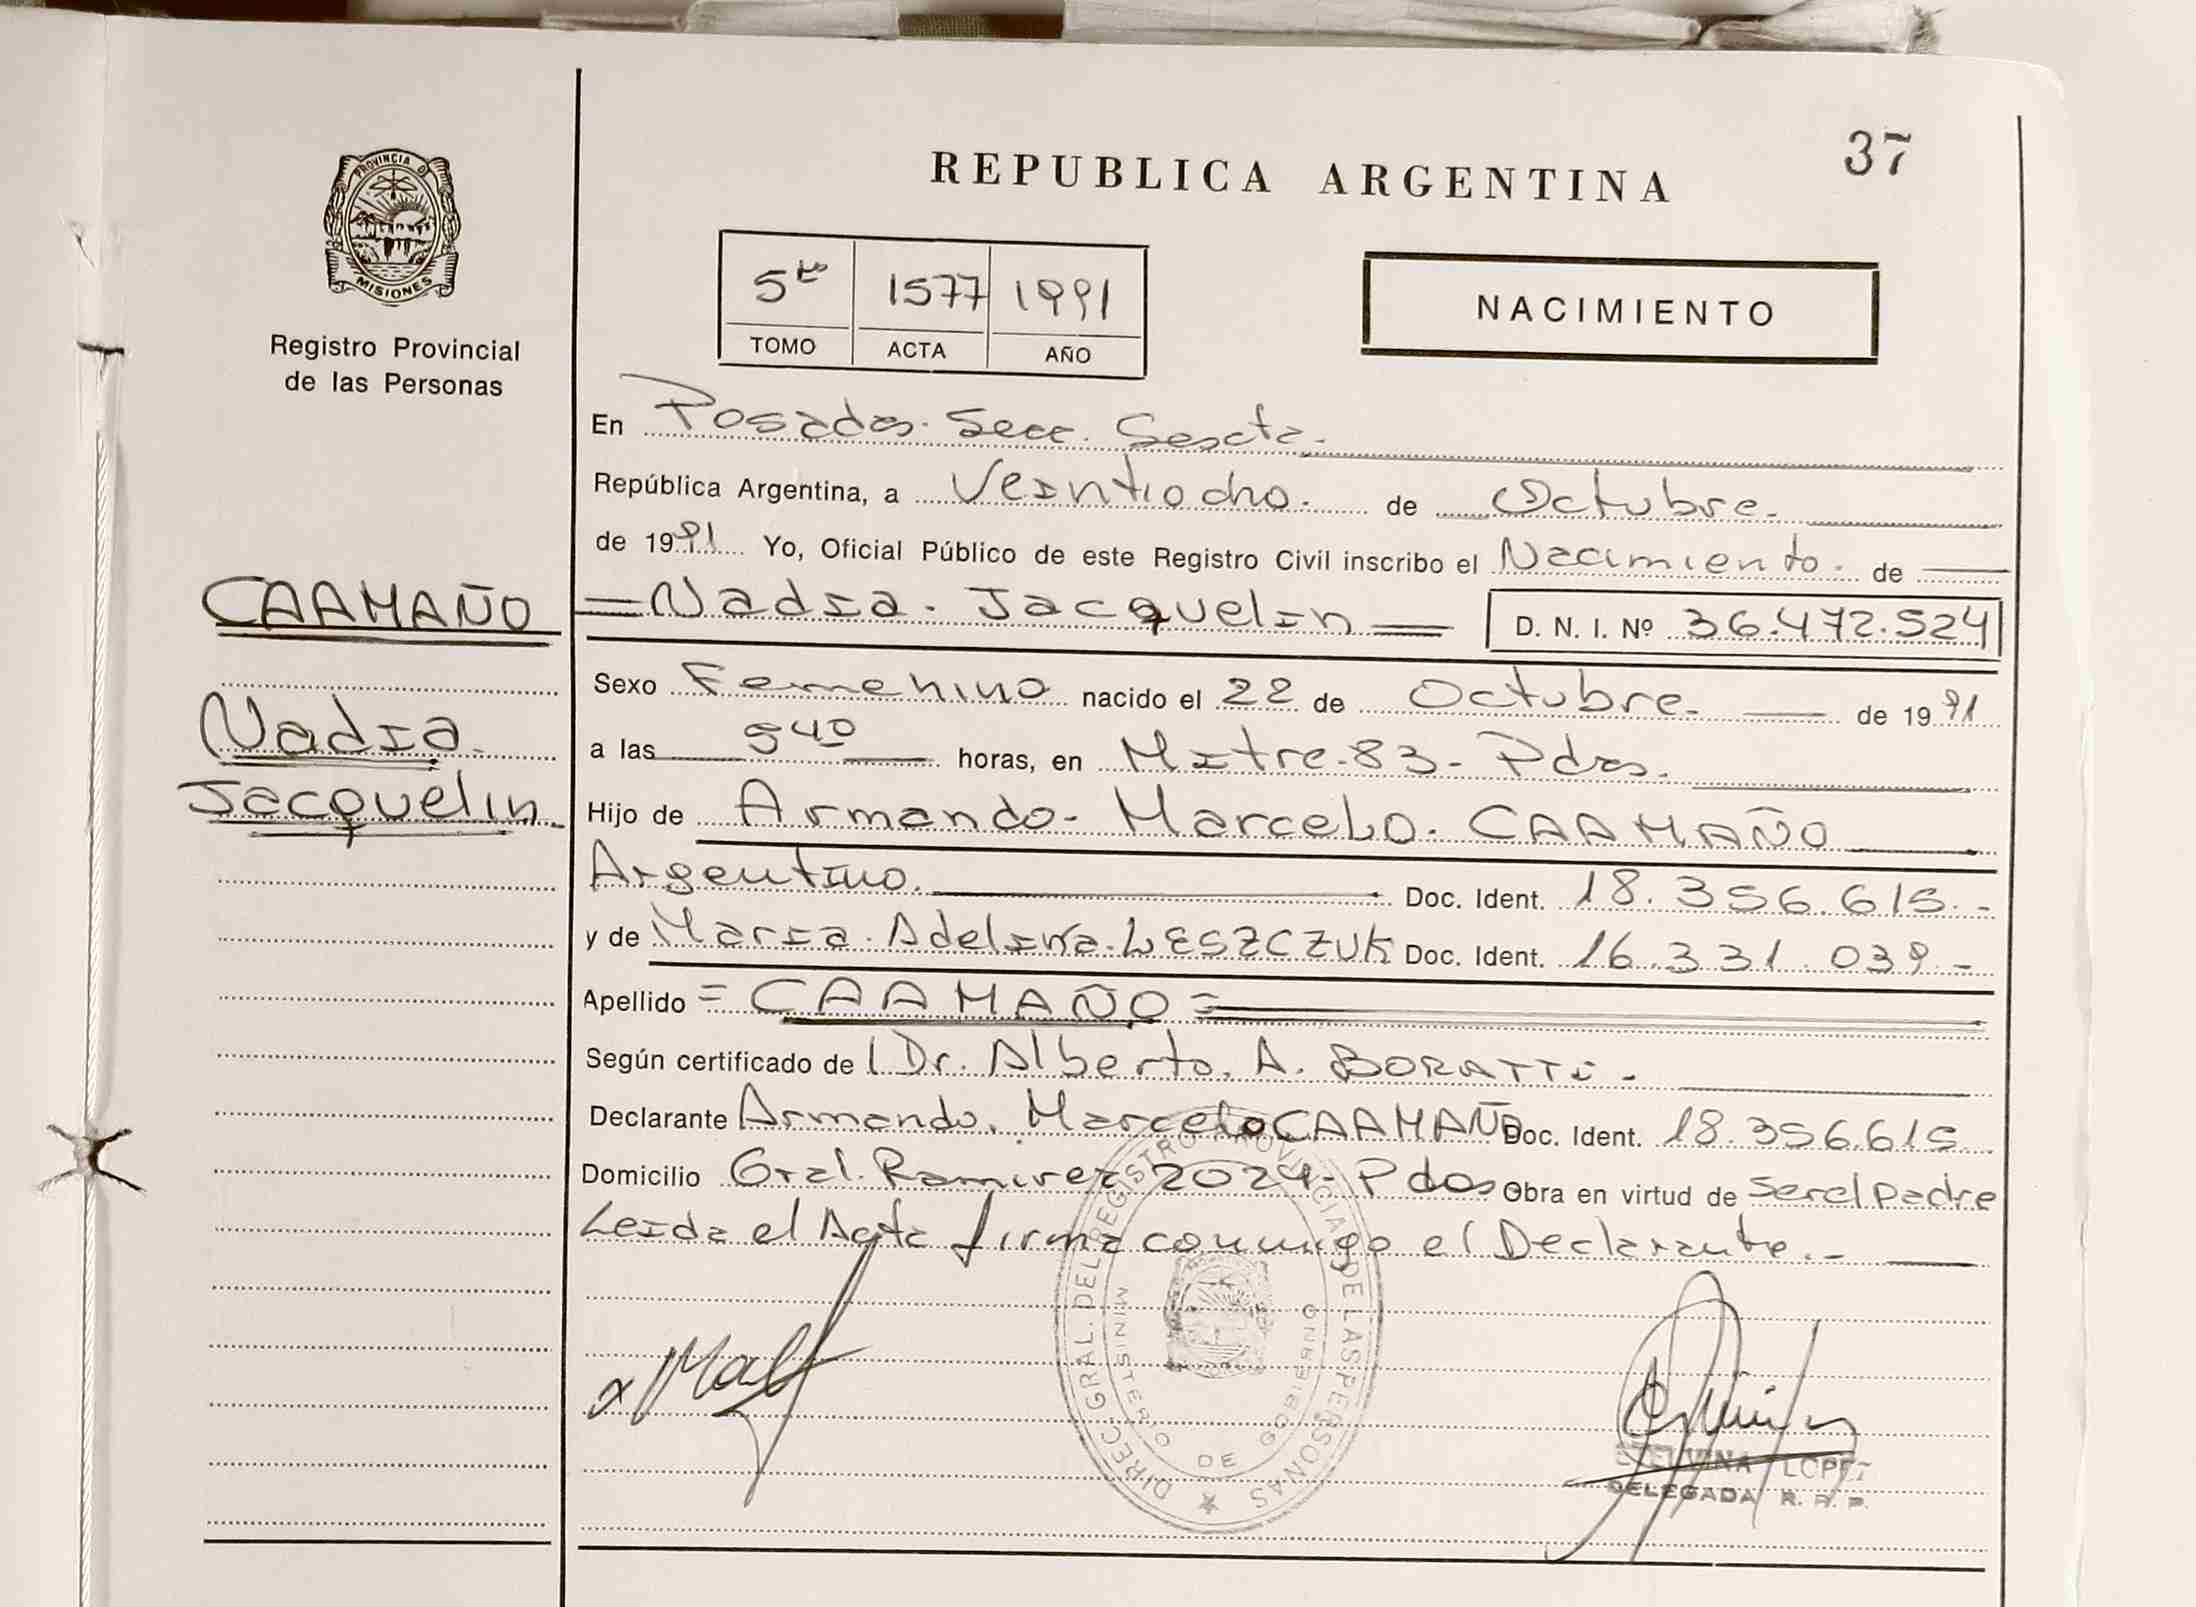 37
REPUBLICA ARGENTINA
PROVINCIA D
MISIONES
Registro Provincial
de las Personas
5to 1577 1991
TOMO ACTA AÑO
NACIMIENTO
En Posadas. Secc. Sexta.
República Argentina, a Veintiocho. de Octubre.
de 1991 Yo, Oficial Público de este Registro Civil inscribo el Nacimiento. de
CAAMAÑO
Nadia.
Jacquelin.
Nadia. Jacquelin D. N. I. Nº 36.472.524
Sexo Femenino nacido el 22 de Octubre. de 1991
a las 540 horas, en Mitre-83- Pdas.
Hijo de Armando- Marcelo. CAAMAÑO
Argentino. Doc. Ident. 18.356.615.-
y de Maria. Adelina. LESZCZUK Doc. Ident. 16.331.039.-
Apellido = CAAMAÑO =
Según certificado de l Dr. Alberto. A. BORATTI.
Declarante Armando. Marcelo CAAMAÑO Doc. Ident. 18.356.615.
Domicilio Gral. Ramirez 2024- Pdas Obra en virtud de ser el padre
Leida el Acta firma conmigo el Declarante.-
DIREC. GRAL. DEL REGISTRO PROVINCIAL DE LAS PERSONAS
MINISTERIO DE GOBIERNO
LOPEZ
DELEGADA R. P. P.